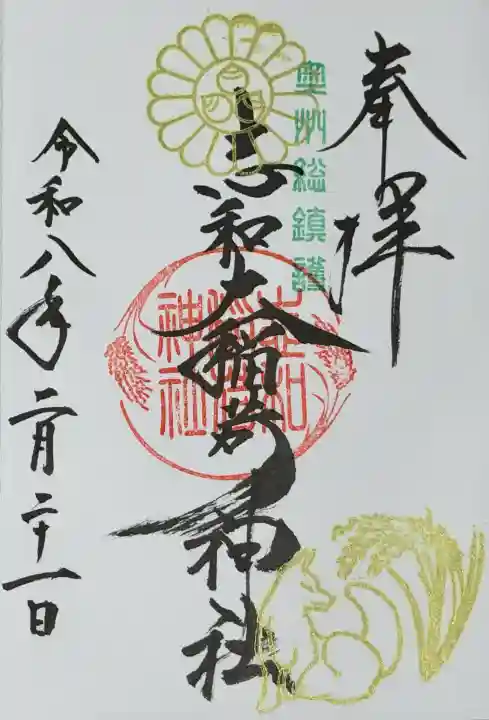 奉拝
奥州総鎮護
志和稲荷神社
令和八年二月二十一日